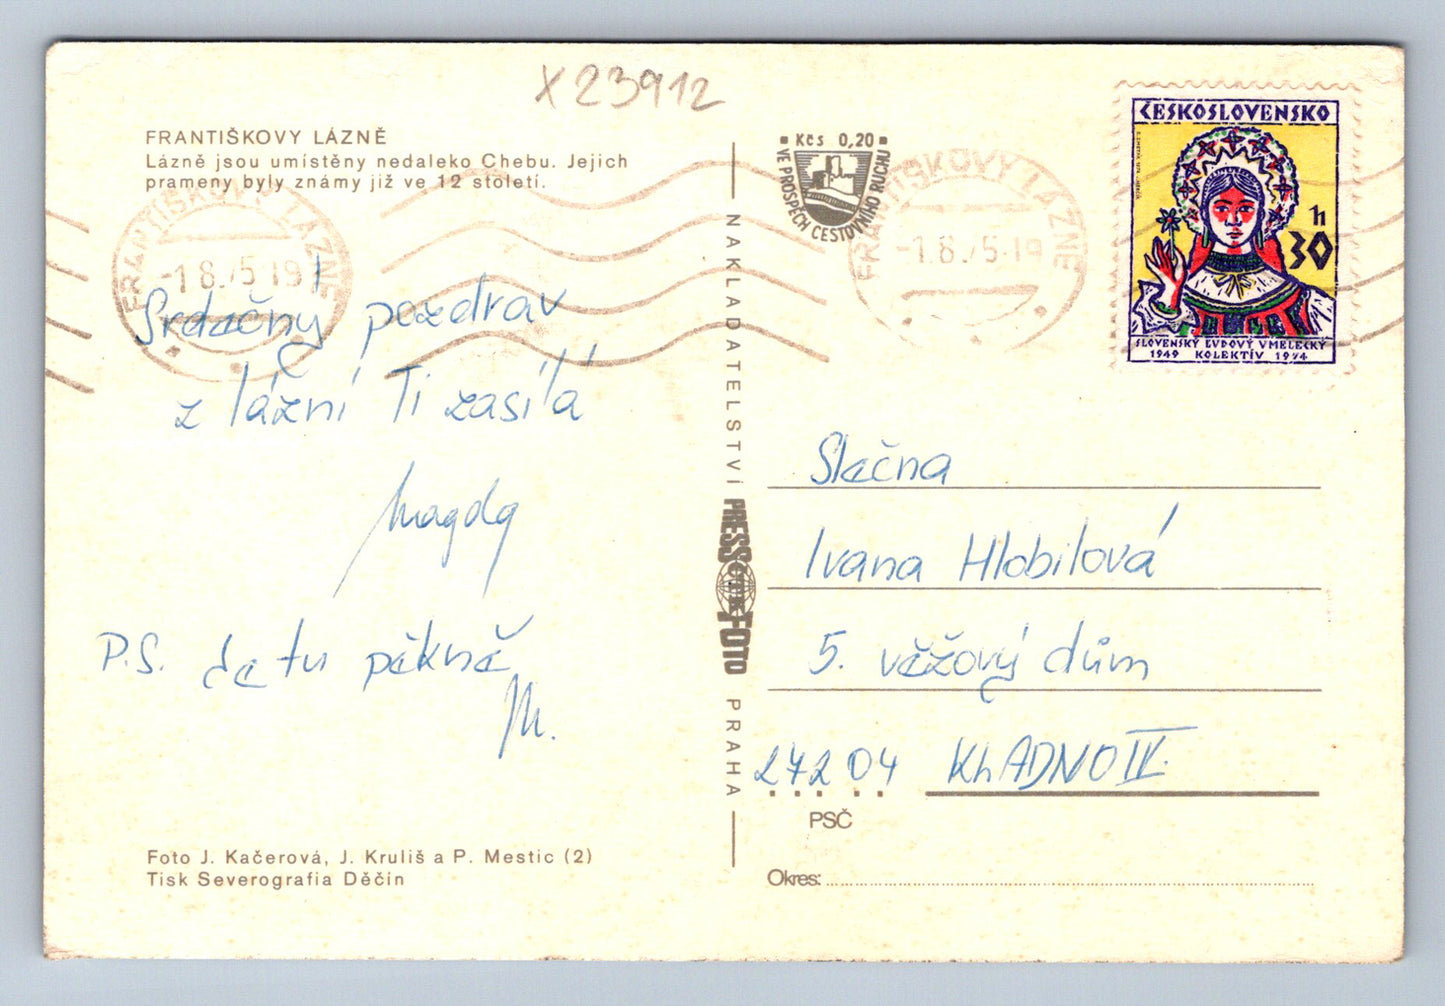 X23912
FRANTIŠKOVY LÁZNĚ
Lázně jsou umístěny nedaleko Chebu. Jejich
prameny byly známy již ve 12 století.
FRANTIŠKOVY LÁZNĚ
-1.8.75-19
Srdačný pozdrav
z lázní Ti zasílá
Magda
P.S. Je tu pěkně
M.
Foto J. Kačerová, J. Kruliš a P. Mestic (2)
Tisk Severografia Děčín
NAKLADATELSTVÍ PRESSFOTO PRAHA
Kčs 0,20
VE PROSPĚCH CESTOVNÍHO RUCHU
FRANTIŠKOVY LÁZNĚ
-1.8.75-19
ČESKOSLOVENSKO
30 h
SLOVENSKÝ ĽUDOVÝ UMELECKÝ
1949 KOLEKTÍV 1974
Slečna
Ivana Hlobilová
5. věžový dům
272 04 KLADNO IV.
PSČ
Okres: